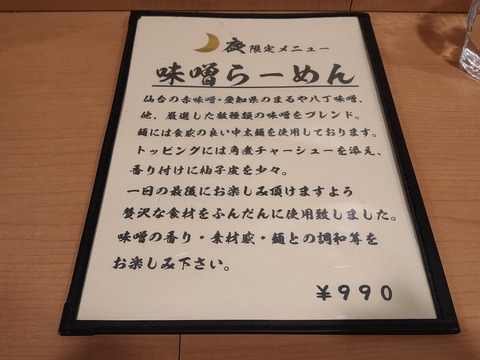 夜限定メニュー
味噌らーめん
仙台の赤味噌・愛知県のまるや八丁味噌、
他、厳選した数種類の味噌をブレンド。
麺には食感の良い中太麺を使用しております。
トッピングには角煮チャーシューを添え、
香り付けに柚子皮を少々。
一日の最後にお楽しみ頂けますよう
贅沢な食材をふんだんに使用致しました。
味噌の香り・素材感・麺との調和等を
お楽しみ下さい。
￥990